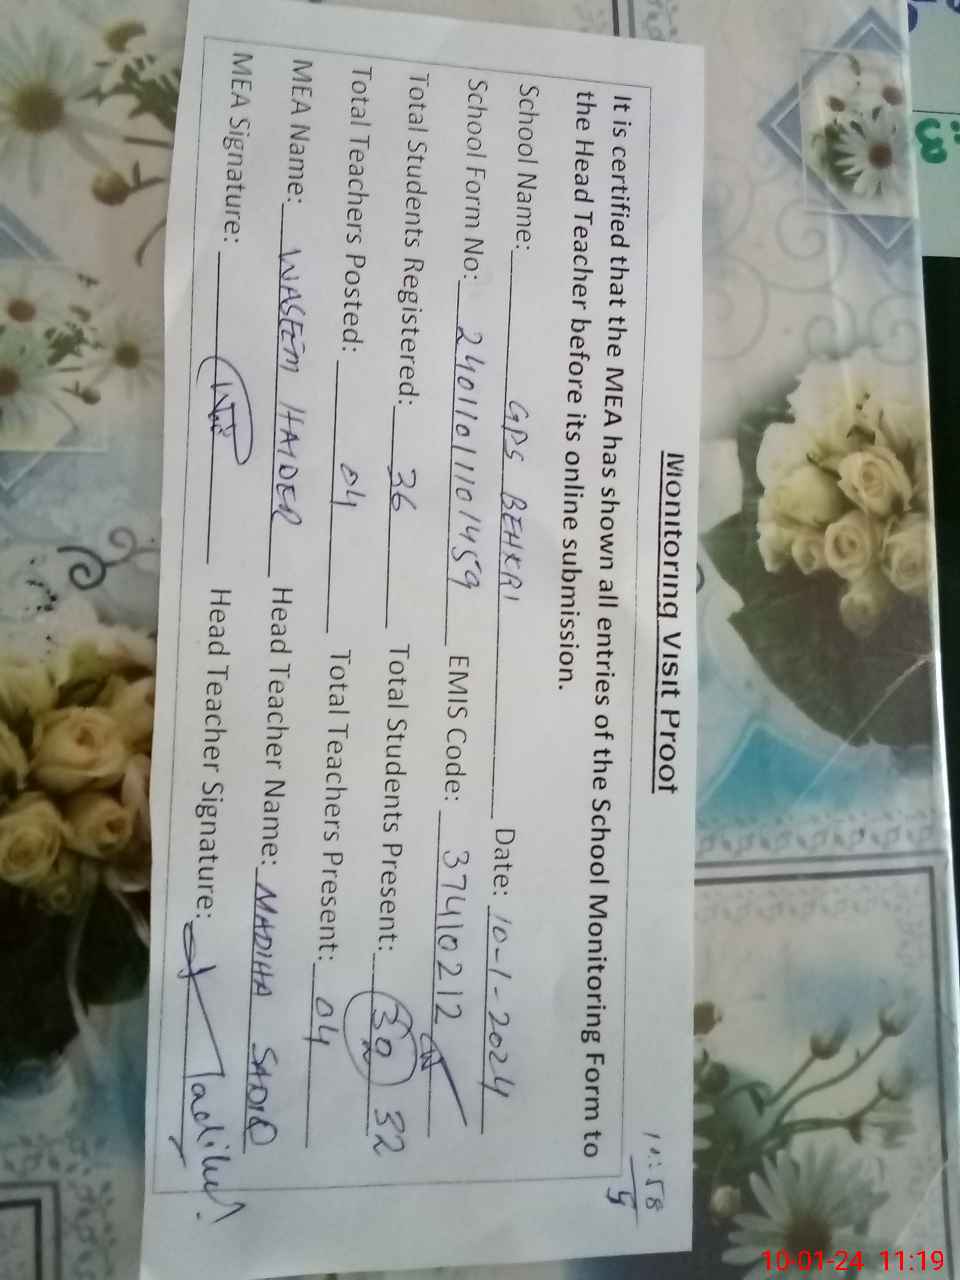 Monitoring Visit Proof
It is certified that the MEA has shown all entries of the School Monitoring Form to
the Head Teacher before its online submission.
School Name: GPS BEHKRI Date: 10-1-2024
School Form No: 240110111101459 EMIS Code: 37410212
Total Students Registered: 36 Total Students Present: 30 32
Total Teachers Posted: 04 Total Teachers Present: 04
MEA Name: WASEEM HAIDER Head Teacher Name: MADIHA SADIQ
MEA Signature: Head Teacher Signature:
10-01-24 11:19